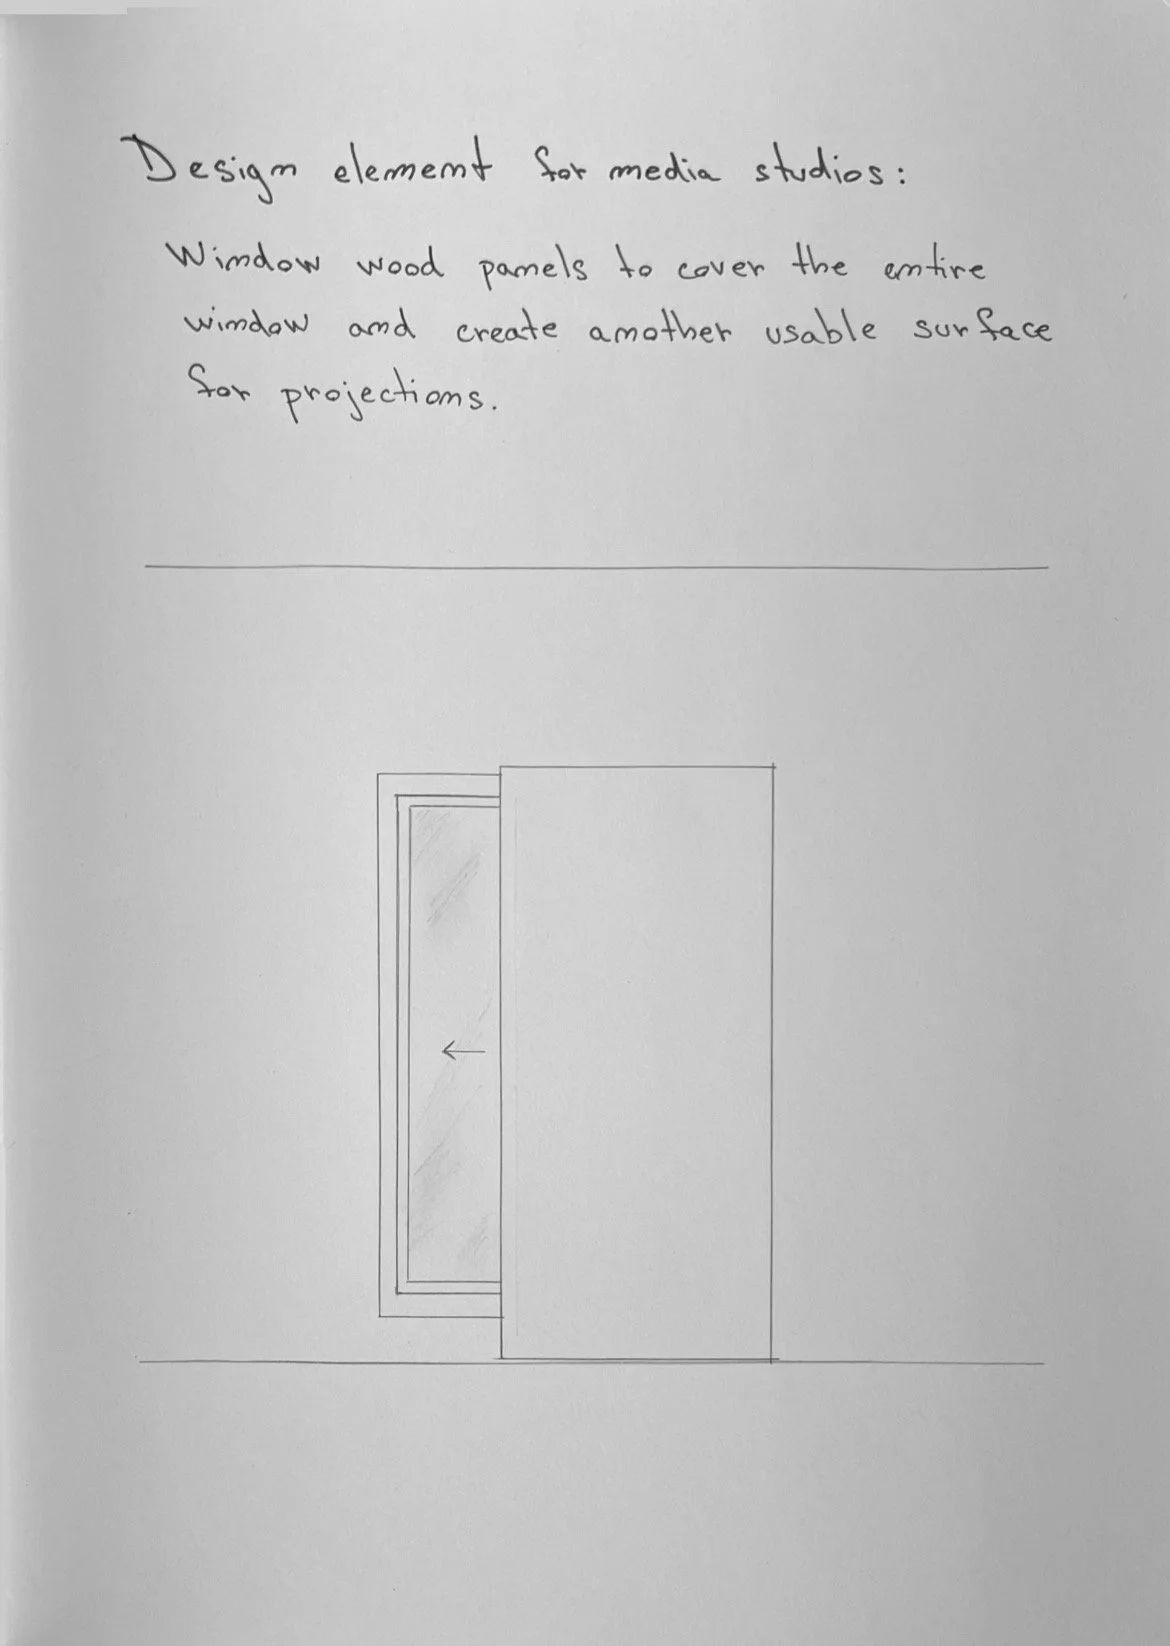 Design element for media studios:
Window wood panels to cover the entire
window and create another usable surface
for projections.